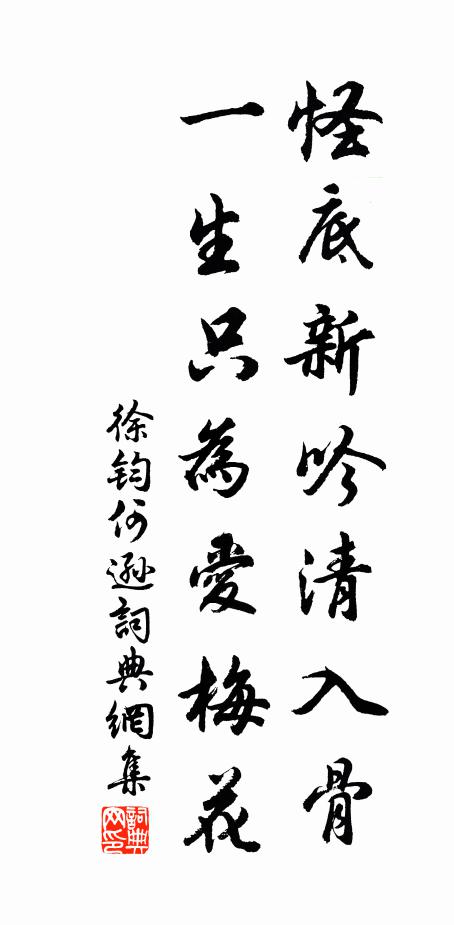 怪底新吟清入骨
一生只為愛梅花
徐鈞何遜詞典網集
詞典網印